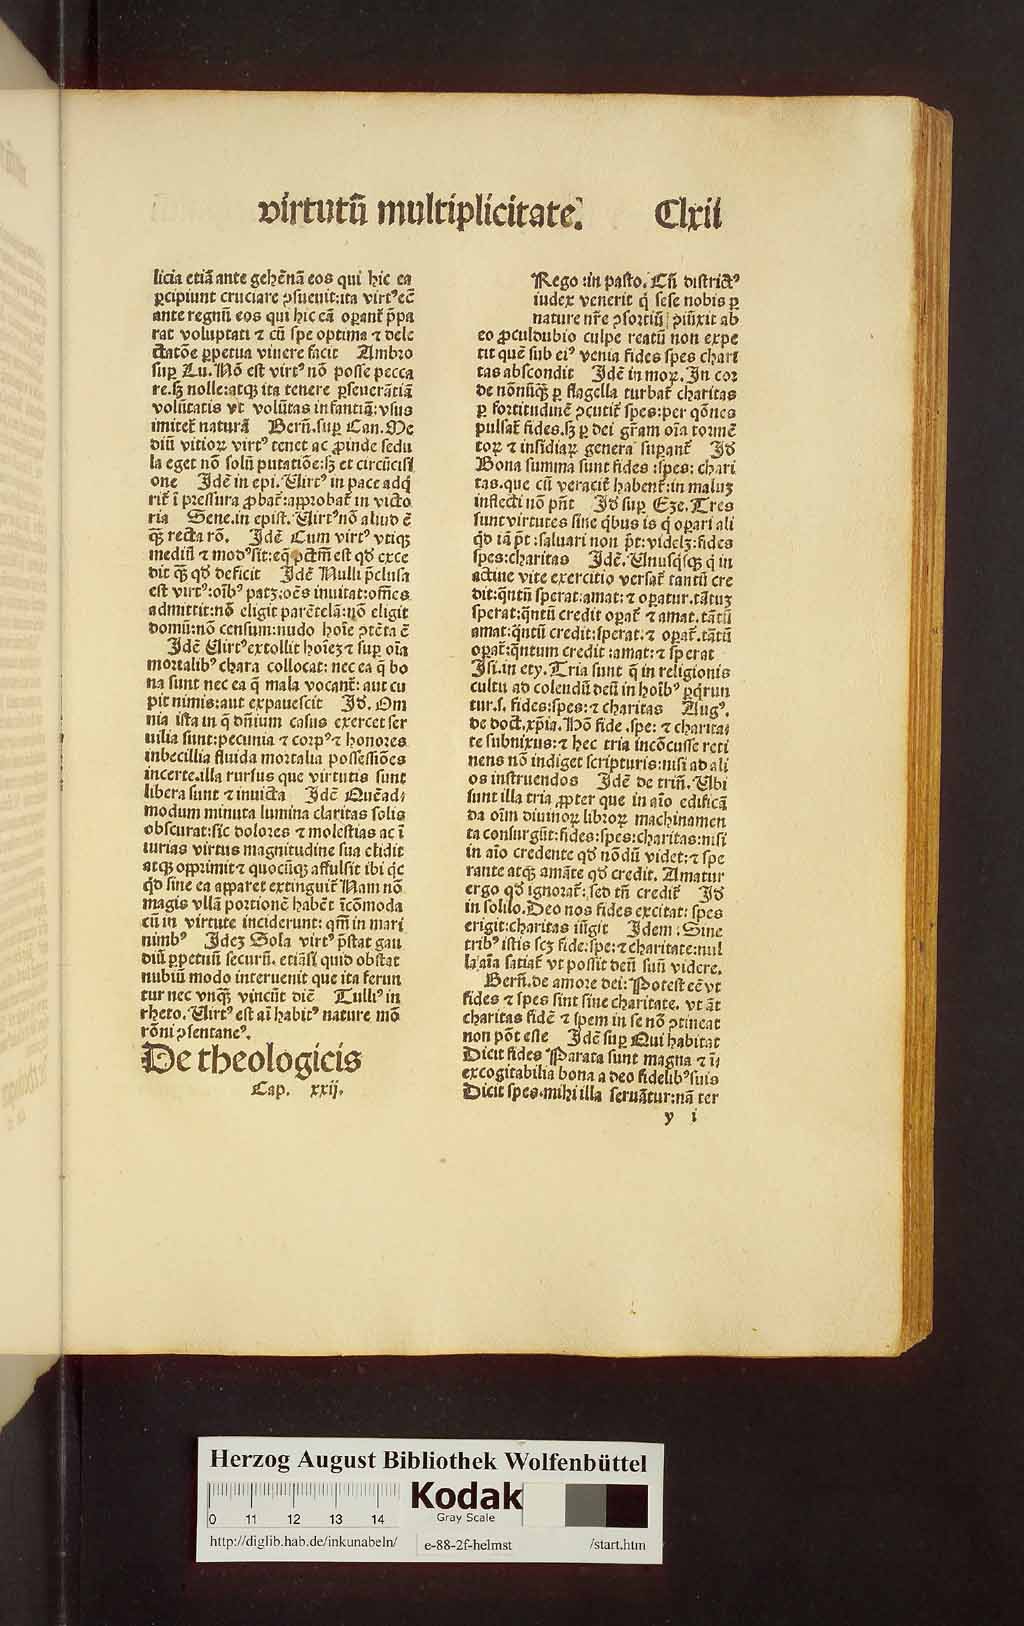 virtutū multiplicitate. Clxii
licia etiā ante gehēnā eos qui hic ea
ꝑcipiunt cruciare ꝯsueuit:ita virtꝰ eē
ante regnū eos qui hic eā operant᷑ p̄pa
rat voluptati ⁊ cū spe optima ⁊ dele
ctatōe ꝑpetua viuere facit Ambro
suꝑ Lu. Nō est virtꝰ nō posse pecca
re.sꝫ nolle:atqꝫ ita tenere ꝑseuerātiā
volūtatis vt volūtas infantiā:vsus
imitet᷑ naturā Bern̄.suꝑ Can. Me
diū vitioꝝ virtꝰ tenet ac ꝓinde sedu
la eget nō solū putatiōe:sꝫ et circūcisi
one Idē in epi. Virtꝰ in pace adq̄
rit᷑ ī pressura ꝓbat᷑:approbat᷑ in victo
ria Sene.in epist. Virtꝰ nō aliud ē
qꝫ̄ recta rō. Idē Cum virtꝰ vtiqꝫ
mediū ⁊ modꝰ sit:eq̄ pctm̄ est qd̄ exce
dit qꝫ̄ qd̄ deficit Idē Nulli p̄clusa
est virtꝰ:oībꝰ patꝫ:oēs inuitat:oēs
admittit:nō eligit parētelā:nō eligit
domū:nō censum:nudo hoīe ꝯtēta ē
Idē Virtꝰ extollit hoīeꝫ ⁊ suꝑ oīa
mortalibꝰ chara collocat: nec ea q̄ bo
na sunt nec ea q̄ mala vocant᷑: aut cu
pit nimis:aut expauescit Id. Om
nia ista in q̄ dn̄ium casus exercet ser
uilia sunt:pecunia ⁊ corpꝰ ⁊ honores
inbecillia fluida mortalia possessiōes
incerte.illa rursus que virtutis sunt
libera sunt ⁊ inuicta Idē Quēad-
modum minuta lumina claritas solis
obscurat:sic dolores ⁊ molestias ac ī
iurias virtus magnitudine sua elidit
atqꝫ opprimit ⁊ quocūqꝫ affulsit ibi qc
qd̄ sine ea apparet extinguit᷑ Nam nō
magis vllā portionē habēt īcōmoda
cū in virtute inciderunt: qm̄ in mari
nimbꝰ Ideꝫ Sola virtꝰ p̄stat gau
diū ꝑpetuū securū. etiāsi quid obstat
nubiū modo interuenit que ita ferun
tur nec vnqꝫ vincūt diē Tulliꝰ in
rheto. Virtꝰ est aī habitꝰ nature mō
rōni ꝯsentaneꝰ.
De theologicis
Cap. xxij.
Rego :in pasto. Cū districtꝰ
iudex venerit q̄ sese nobis ꝑ
nature nr̄e ꝯsortiū ꝯiūxit ab
eo ꝓculdubio culpe reatū non expe
tit quē sub eiꝰ venia fides spes chari
tas abscondit Idē in moꝝ. In cor
de nōnūqꝫ ꝑ flagella turbat᷑ charitas
ꝑ fortitudinē ꝯcutit᷑ spes:per qōnes
pulsat᷑ fides.sꝫ ꝑ dei gr̄am oīa tormē
toꝝ ⁊ insidiaꝝ genera suꝑant᷑ Id
Bona summa sunt fides :spes: chari
tas.que cū veracit᷑ habent᷑:in maluꝫ
inflecti nō pn̄t Id suꝑ Eze. Tres
sunt virtutes sine qbus is q̄ oꝑari ali
qd̄ iā pt̄ :saluari non pt̄: videlꝫ:fides
spes:charitas Idē. Vnusqsqꝫ q̄ in
actiue vite exercitio versat᷑ tantū cre
dit:qntū sperat:amat: ⁊ oꝑatur.tātuꝫ
sperat:qntū credit oꝑat᷑ ⁊ amat.tātū
amat:qntū credit:sperat.⁊ oꝑat᷑.tātū
oꝑat᷑:qntum credit :amat:⁊ sperat
Isi.in ety. Tria sunt q̄ in religionis
cultu ad colendū deū in hoībꝰ ꝑqrun
tur.s. fides:spes:⁊ charitas Augꝰ.
de doct.xp̄ia. Hō fide .spe: ⁊ charita-
te subnixus:⁊ hec tria incōcusse reti
nens nō indiget scripturis:nisi ad ali
os instruendos Idē de trin̄. Vbi
sunt illa tria ꝓpter que in aīo edificā
da oīm diuinoꝝ libroꝝ machinamen
ta consurgūt:fides:spes:charitas:nisi
in aīo credente qd̄ nōdū videt:⁊ spe
rante atqꝫ amāte qd̄ credit. Amatur
ergo qd̄ ignorat᷑: sed tn̄ credit᷑ Id
in solilo.Deo nos fides excitat: spes
erigit:charitas iūgit Idem : Sine
tribꝰ istis scꝫ fide:spe:⁊ charitate:nul
la aīa satiat᷑ vt possit deū suū videre.
Bern̄.de amore dei: Potest eē vt
fides ⁊ spes sint sine charitate. vt āt
charitas fidē ⁊ spem in se nō ꝯtineat
non pōt esse Idē suꝑ Qui habitat
Dicit fides Parata sunt magna ⁊ ī-
excogitabilia bona a deo fidelibꝰ suis
Dicit spes.mihi illa seruātur:nā ter
y i
Herzog August Bibliothek Wolfenbüttel
0 11 12 13 14
Kodak
Gray Scale
http://diglib.hab.de/inkunabeln/ e-88-2f-helmst /start.htm